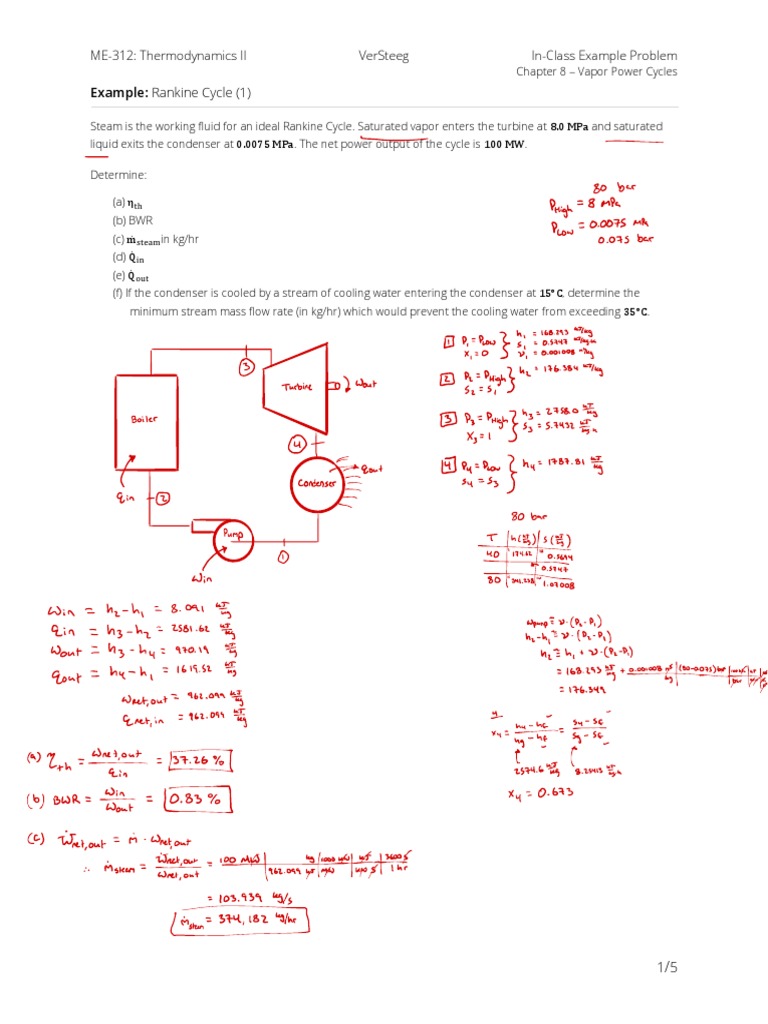 ME-312: Thermodynamics II VerSteeg In-Class Example Problem
Chapter 8 – Vapor Power Cycles
Example: Rankine Cycle (1)
Steam is the working fluid for an ideal Rankine Cycle. Saturated vapor enters the turbine at 8.0 MPa and saturated
liquid exits the condenser at 0.0075 MPa. The net power output of the cycle is 100 MW.
Determine:
(a) η_th
(b) BWR
(c) ṁ_steam in kg/hr
(d) Q̇_in
(e) Q̇_out
(f) If the condenser is cooled by a stream of cooling water entering the condenser at 15°C, determine the
minimum stream mass flow rate (in kg/hr) which would prevent the cooling water from exceeding 35°C.
80 bar
P_High = 8 MPa
P_Low = 0.0075 MPa
0.075 bar
3
Turbine
Wout
Boiler
4
Condenser
qout
qin
2
Pump
1
Win
1 P1 = PLow
x1 = 0
h1 = 168.293 kJ/kg
s1 = 0.5747 kJ/kg·K
v1 = 0.001008 m³/kg
2 P2 = PHigh
s2 = s1
h2 = 176.384 kJ/kg
3 P3 = PHigh
x3 = 1
h3 = 2758.0 kJ/kg
s3 = 5.7432 kJ/kg·K
4 P4 = PLow
s4 = s3
h4 = 1787.81 kJ/kg
80 bar
T h(kJ/kg) s(kJ/kg)
40 174.62 0.5694
0.5747
80 1.07008
win = h2-h1 = 8.091 kJ/kg
qin = h3-h2 = 2581.62 kJ/kg
wout = h3-h4 = 970.19 kJ/kg
qout = h4-h1 = 1619.52 kJ/kg
wnet,out = 962.099 kJ/kg
qnet,in = 962.099 kJ/kg
wpump ≅ v·(P2-P1)
h2-h1 ≅ v·(P2-P1)
h2 ≅ h1 + v·(P2-P1)
= 168.293 kJ/kg + 0.001008
= 176.349
x4 = h4-hf / hg-hf = s4-sf / sg-sf
2574.6 kJ/kg 8.2543
x4 = 0.673
(a) ηth = wnet,out / qin = 37.26 %
(b) BWR = win / wout = 0.83 %
(c) Ẇnet,out = ṁ · wnet,out
∴ ṁsteam = Ẇnet,out / wnet,out = 100 MW | kg | 1000 kW | kJ | 3600 s
962.099 kJ | MW | kW·s | 1 hr
= 103.939 kg/s
ṁsteam = 374,182 kg/hr
1/5